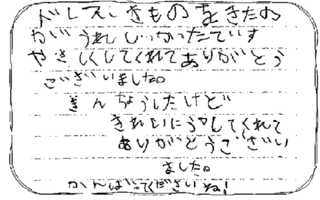 きものをきたの
がうれしかったです
やさしくしてくれてありがとう
ございました。
きんちょうしたけど
きれいにしてくれて
ありがとうござい
ました。
がんばってくださいね!